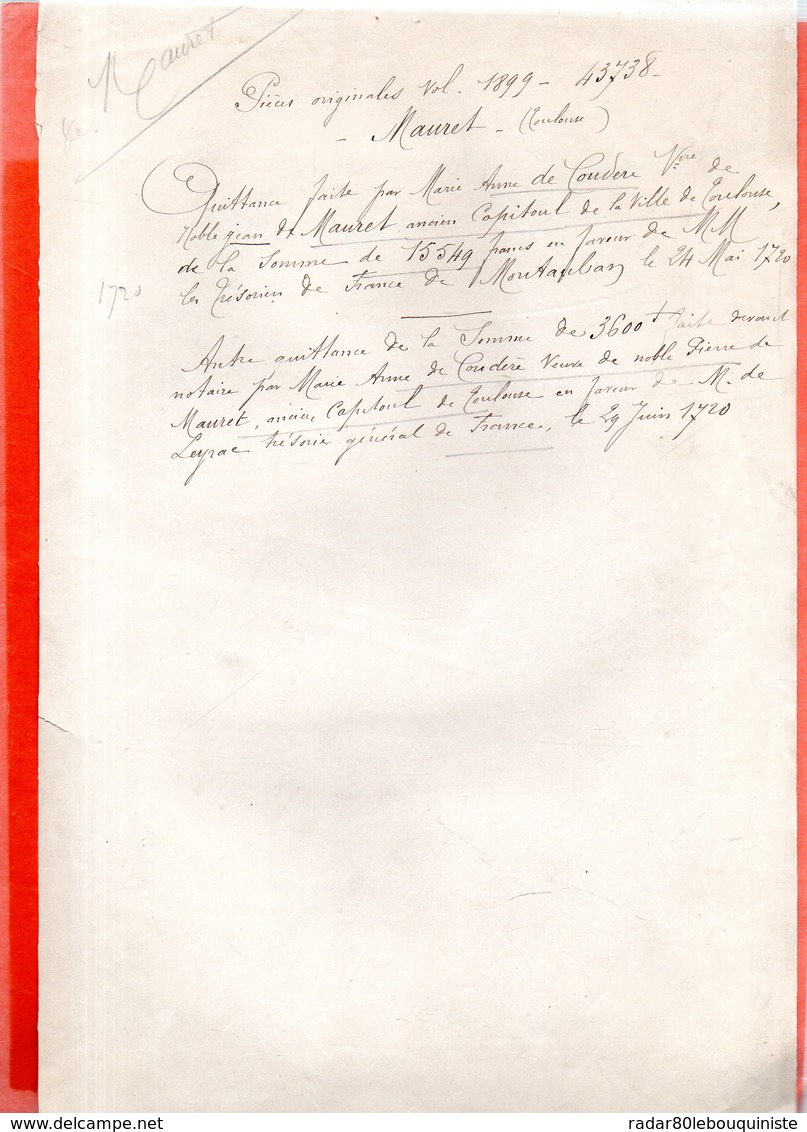 de Mauret
Pièces originales Vol. 1899 - 43738 -
- Mauret - (Toulouse)
Quittance faite par Marie Anne de Coudere Vve de
Noble Jean de Mauret, ancien Capitoul de la Ville de Toulouse,
de la Somme de 15549 francs en faveur de MM
les Trésoriers de France de Montauban le 24 Mai 1720
1720
Autre quittance de la Somme de 3600 ₶ faite devant
notaire par Marie Anne de Couderé Veuve de noble Pierre de
Mauret, ancien Capitoul de Toulouse en faveur de M. de
Leyrac trésorier général de France, le 29 Juin 1720
delcampe.net
radar80lebouquiniste